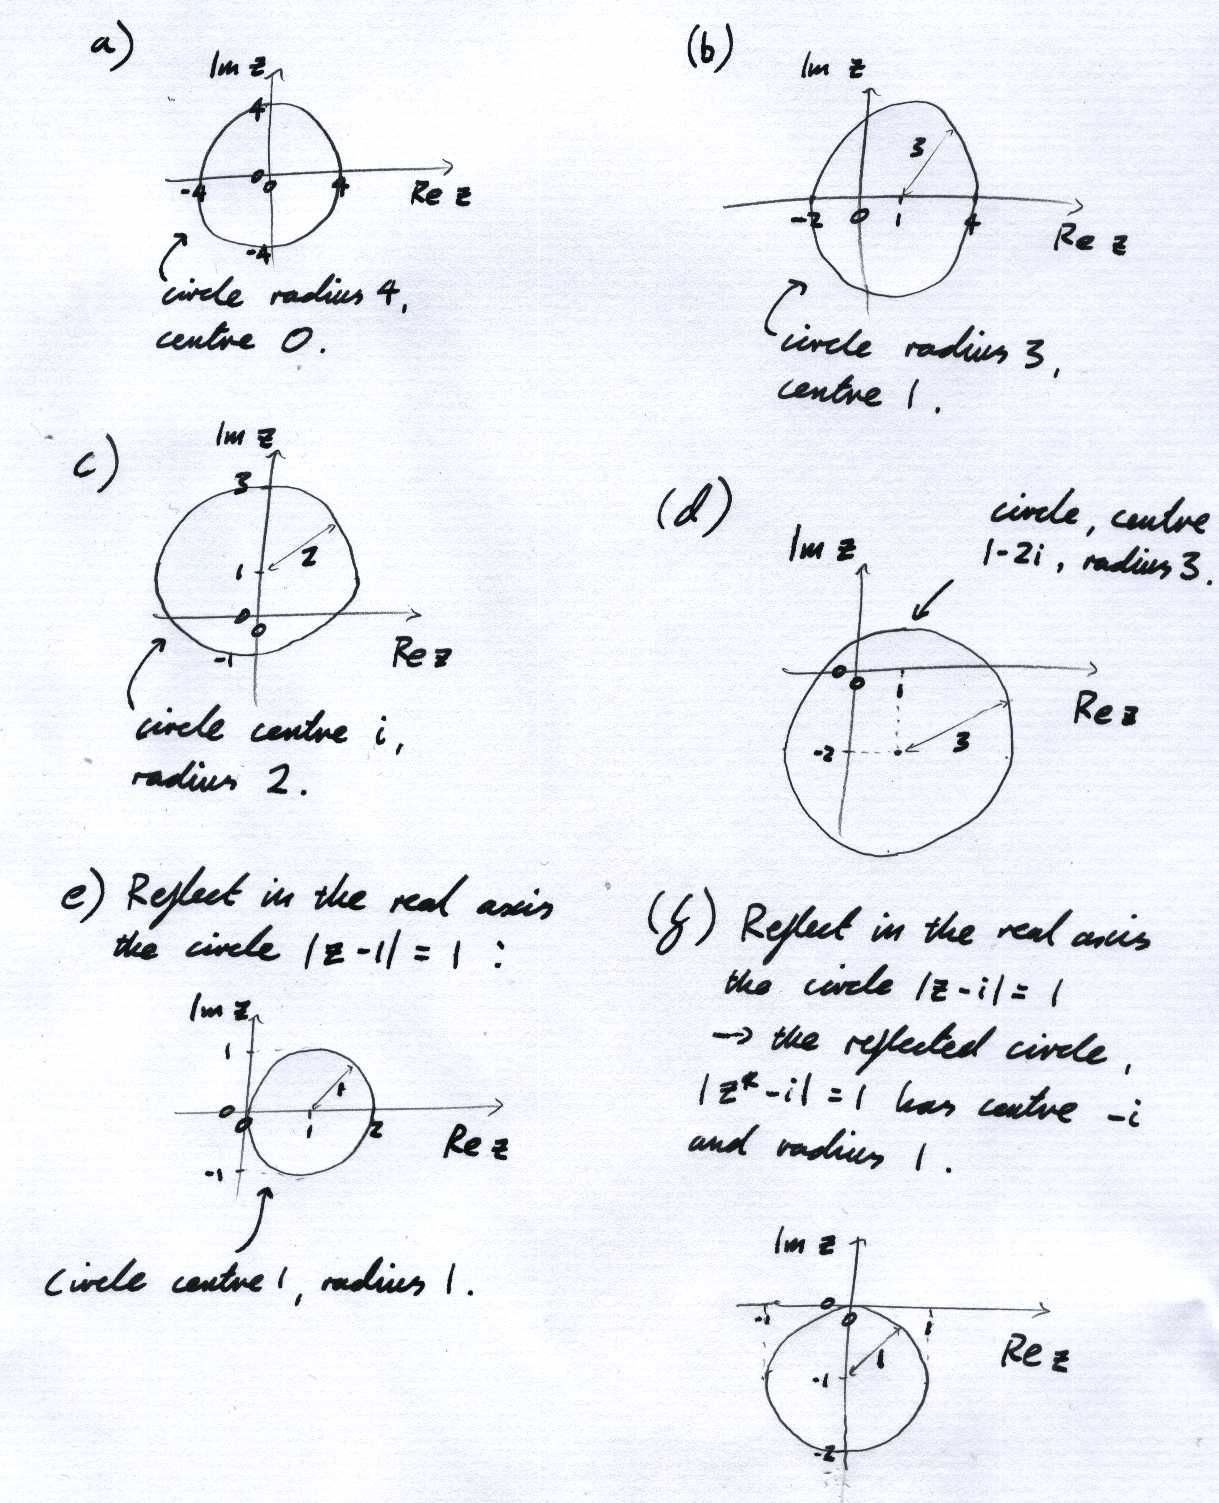 a)
Im z
4
0
-4
0
4
Re z
-4
circle radius 4,
centre 0.
(b)
Im z
3
-2
0
1
4
Re z
circle radius 3,
centre 1.
c)
Im z
3
2
1
0
0
-1
Re z
circle centre i,
radius 2.
(d)
circle, centre
1-2i, radius 3.
Im z
0
0
1
Re z
-2
3
e) Reflect in the real axis
the circle |z-1| = 1 :
Im z
1
1
0
0
1
2
Re z
-1
Circle centre 1, radius 1.
(f) Reflect in the real axis
the circle |z-i| = 1
→ the reflected circle,
|z*-i| = 1 has centre -i
and radius 1.
Im z
0
-1
0
1
Re z
1
-1
-2